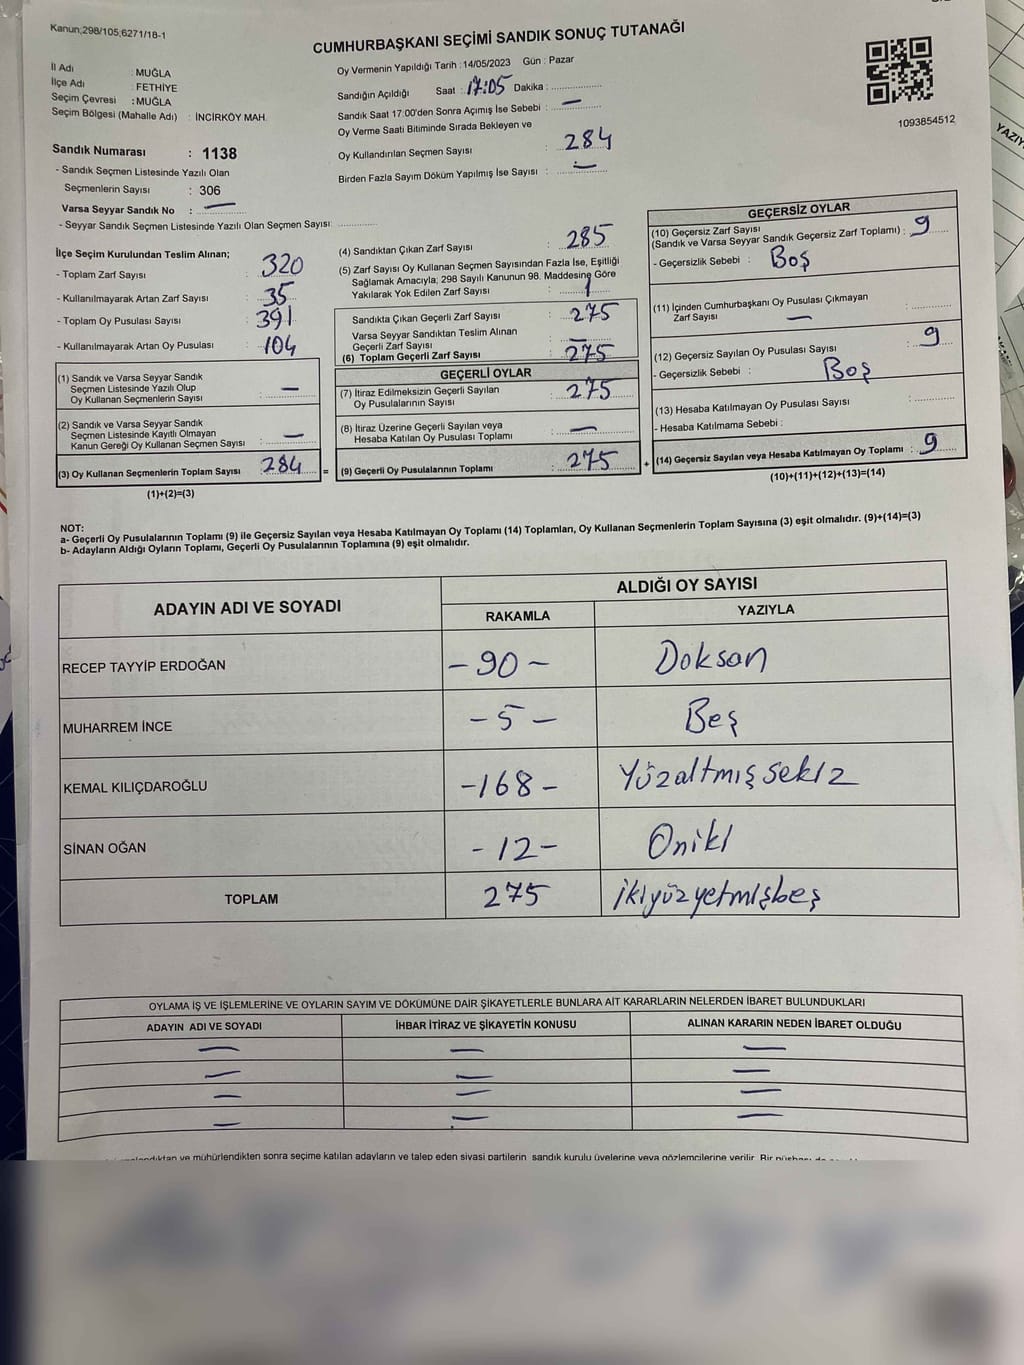 Kanun;298/105,6271/18-1
CUMHURBAŞKANI SEÇİMİ SANDIK SONUÇ TUTANAĞI
İl Adı : MUĞLA
İlçe Adı : FETHİYE
Seçim Çevresi : MUĞLA
Seçim Bölgesi (Mahalle Adı) : İNCİRKÖY MAH.
Sandık Numarası : 1138
- Sandık Seçmen Listesinde Yazılı Olan
Seçmenlerin Sayısı : 306
Varsa Seyyar Sandık No : —
- Seyyar Sandık Seçmen Listesinde Yazılı Olan Seçmen Sayısı: ..............
Oy Vermenin Yapıldığı Tarih : 14/05/2023 Gün : Pazar
Sandığın Açıldığı Saat : 17:05 Dakika : ..............
Sandık Saat 17:00'den Sonra Açımış İse Sebebi : —
Oy Verme Saati Bitiminde Sırada Bekleyen ve
Oy Kullandırılan Seçmen Sayısı : 284
Birden Fazla Sayım Döküm Yapılmış İse Sayısı : —
1093854512
İlçe Seçim Kurulundan Teslim Alınan;
- Toplam Zarf Sayısı : 320
- Kullanılmayarak Artan Zarf Sayısı : 35
- Toplam Oy Pusulası Sayısı : 391
- Kullanılmayarak Artan Oy Pusulası : 104
(1) Sandık ve Varsa Seyyar Sandık
Seçmen Listesinde Yazılı Olup
Oy Kullanan Seçmenlerin Sayısı : —
(2) Sandık ve Varsa Seyyar Sandık
Seçmen Listesinde Kayıtlı Olmayan
Kanun Gereği Oy Kullanan Seçmen Sayısı : —
(3) Oy Kullanan Seçmenlerin Toplam Sayısı : 284 =
(1)+(2)=(3)
(4) Sandıktan Çıkan Zarf Sayısı : 285
(5) Zarf Sayısı Oy Kullanan Seçmen Sayısından Fazla İse, Eşitliği
Sağlamak Amacıyla; 298 Sayılı Kanunun 98. Maddesine Göre
Yakılarak Yok Edilen Zarf Sayısı : 1
Sandıkta Çıkan Geçerli Zarf Sayısı : 275
Varsa Seyyar Sandıktan Teslim Alınan
Geçerli Zarf Sayısı : —
(6) Toplam Geçerli Zarf Sayısı : 275
GEÇERLİ OYLAR
(7) İtiraz Edilmeksizin Geçerli Sayılan
Oy Pusulalarının Sayısı : 275
(8) İtiraz Üzerine Geçerli Sayılan veya
Hesaba Katılan Oy Pusulası Toplamı : —
(9) Geçerli Oy Pusulalarının Toplamı : 275 +
GEÇERSİZ OYLAR
(10) Geçersiz Zarf Sayısı
(Sandık ve Varsa Seyyar Sandık Geçersiz Zarf Toplamı) : 9
- Geçersizlik Sebebi : Boş
(11) İçinden Cumhurbaşkanı Oy Pusulası Çıkmayan
Zarf Sayısı : —
(12) Geçersiz Sayılan Oy Pusulası Sayısı : 9
- Geçersizlik Sebebi : Boş
(13) Hesaba Katılmayan Oy Pusulası Sayısı : ..............
- Hesaba Katılmama Sebebi :
(14) Geçersiz Sayılan veya Hesaba Katılmayan Oy Toplamı : 9
(10)+(11)+(12)+(13)=(14)
NOT:
a- Geçerli Oy Pusulalarının Toplamı (9) ile Geçersiz Sayılan veya Hesaba Katılmayan Oy Toplamı (14) Toplamları, Oy Kullanan Seçmenlerin Toplam Sayısına (3) eşit olmalıdır. (9)+(14)=(3)
b- Adayların Aldığı Oyların Toplamı, Geçerli Oy Pusulalarının Toplamına (9) eşit olmalıdır.
ADAYIN ADI VE SOYADI
ALDIĞI OY SAYISI
RAKAMLA YAZIYLA
RECEP TAYYİP ERDOĞAN -90- Doksan
MUHARREM İNCE -5- Beş
KEMAL KILIÇDAROĞLU -168- Yüzaltmışsekiz
SİNAN OĞAN -12- Oniki
TOPLAM 275 İkiyüzyetmişbeş
OYLAMA İŞ VE İŞLEMLERİNE VE OYLARIN SAYIM VE DÖKÜMÜNE DAİR ŞİKAYETLERLE BUNLARA AİT KARARLARIN NELERDEN İBARET BULUNDUKLARI
ADAYIN ADI VE SOYADI İHBAR İTİRAZ VE ŞİKAYETİN KONUSU ALINAN KARARIN NEDEN İBARET OLDUĞU
— — —
— — —
— — —
— — —
ve mühürlendikten sonra seçime katılan adayların ve talep eden siyasi partilerin sandık kurulu üyelerine veya gözlemcilerine verilir. Bir
YAZIY